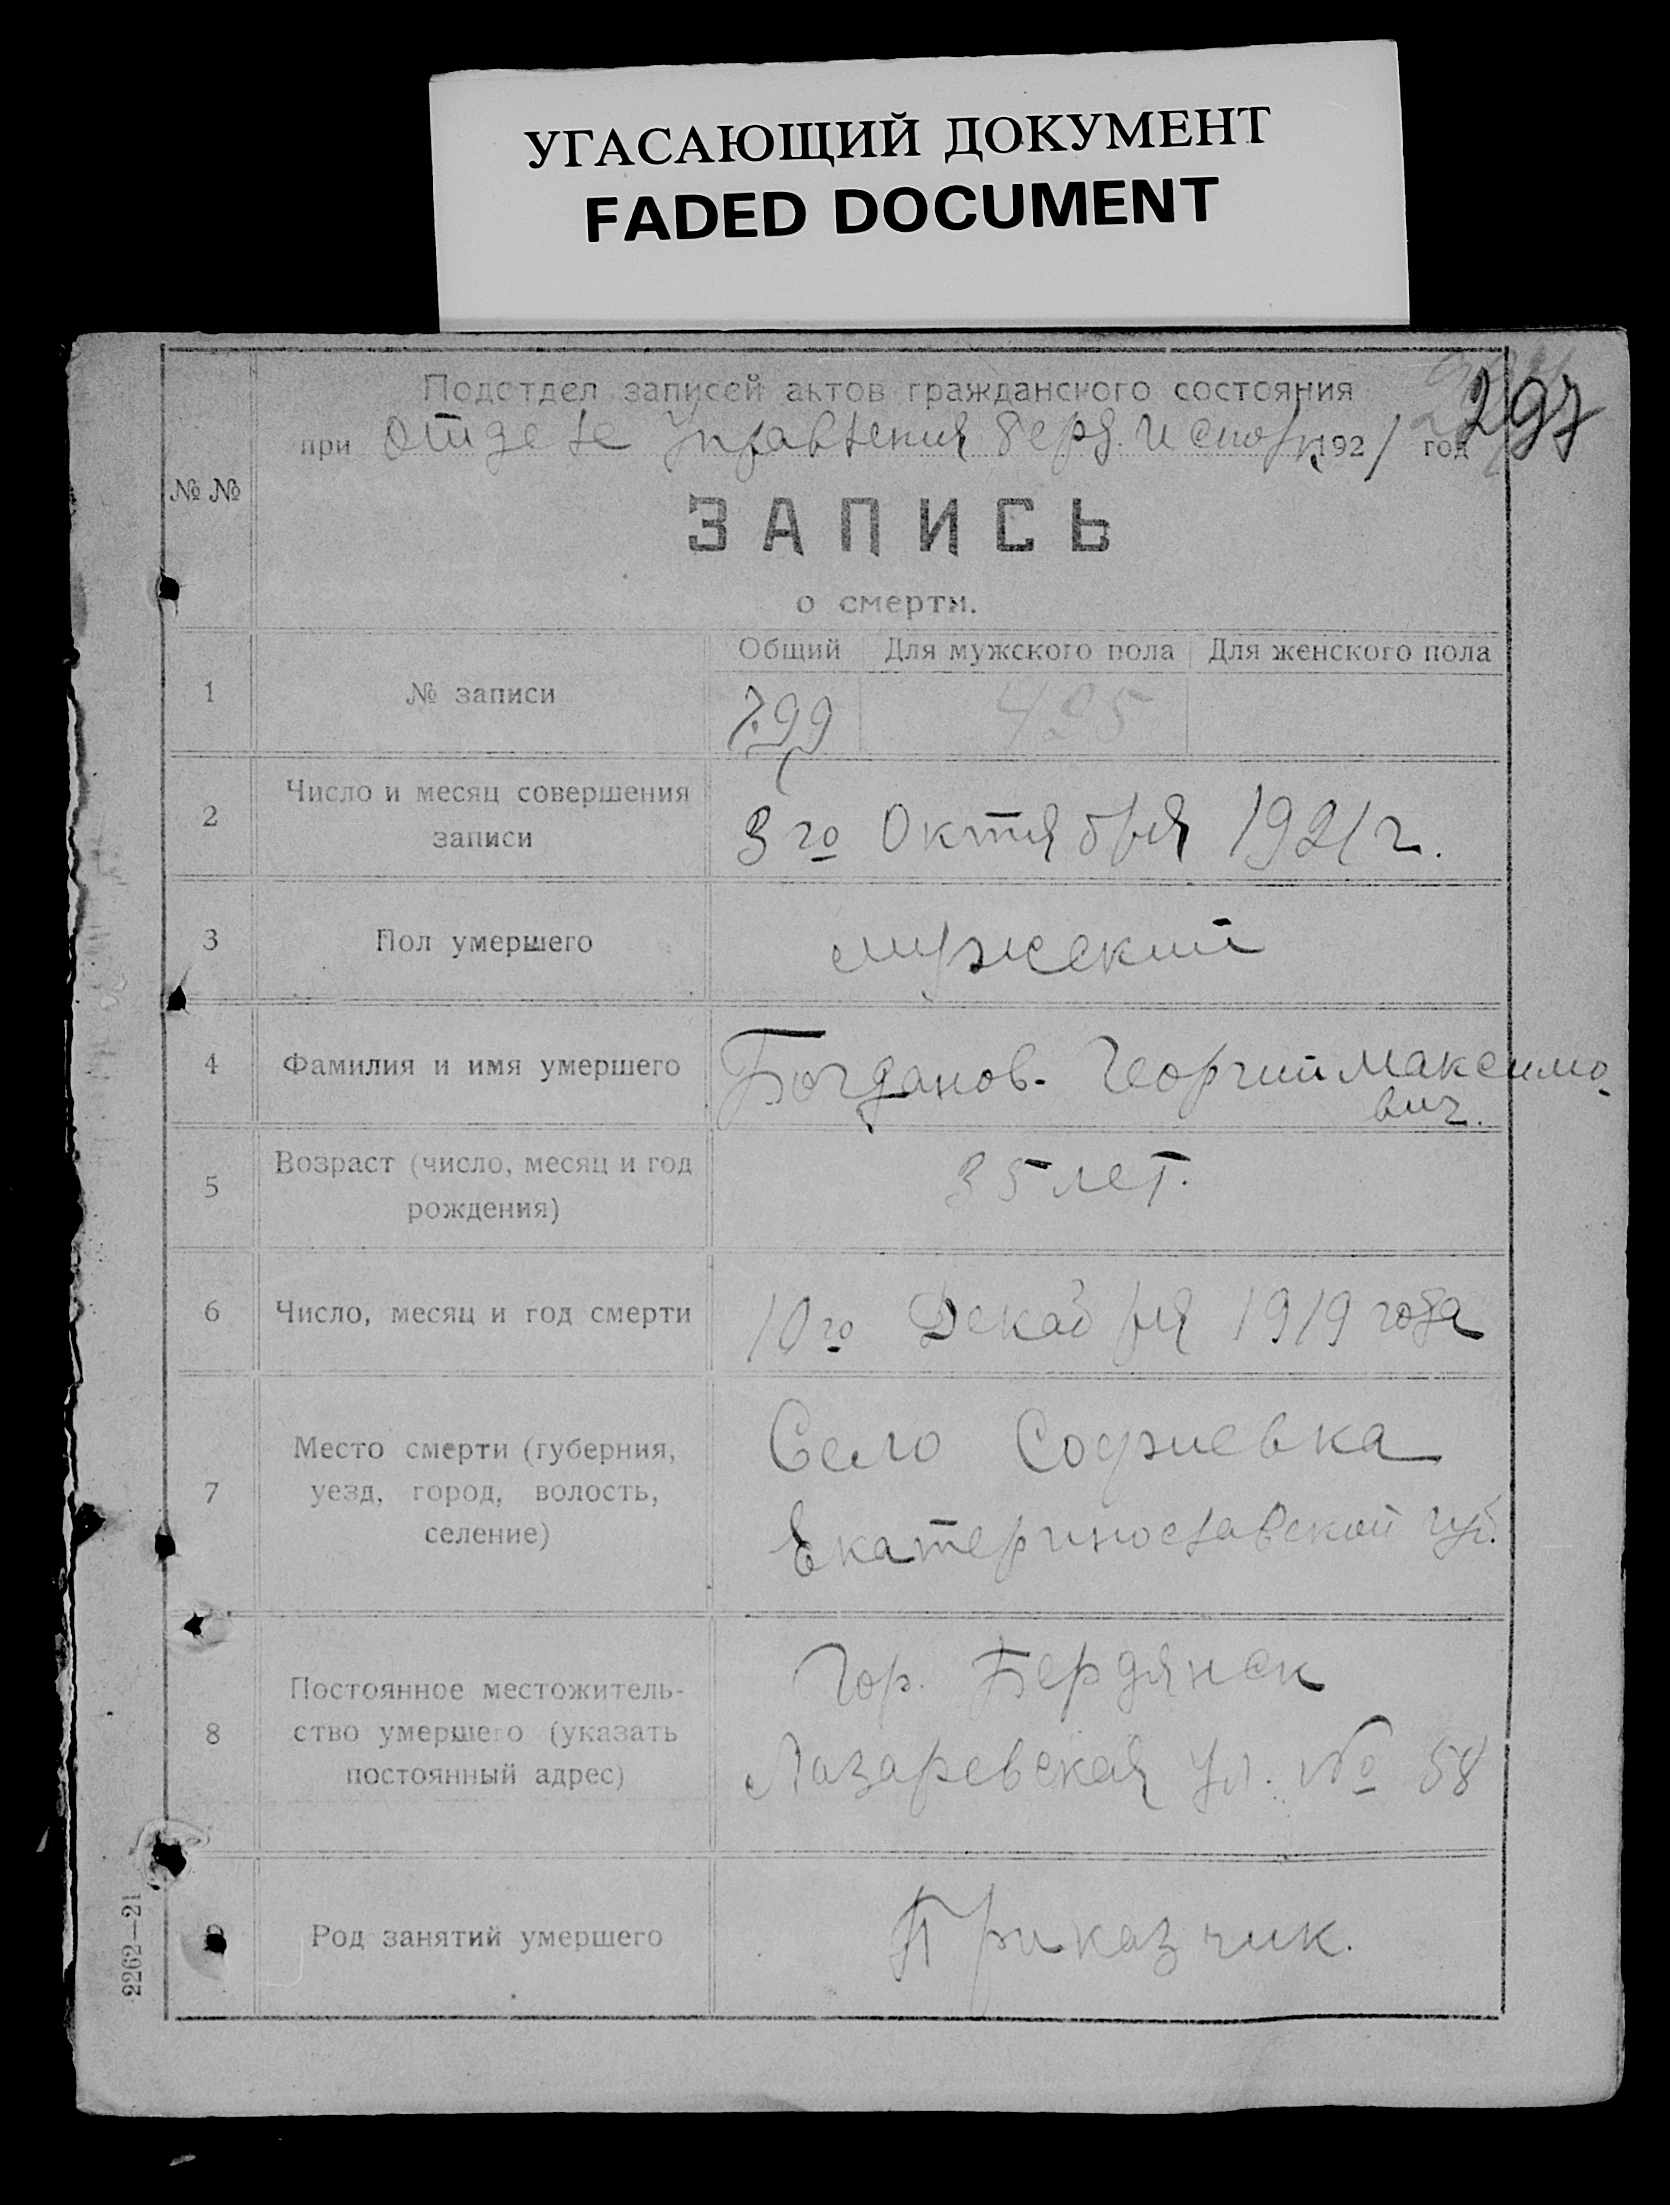 УГАСАЮЩИЙ ДОКУМЕНТ
FADED DOCUMENT
297
Подотдел записей актов гражданского состояния
при Отделе Управления Берд. Исполк. 1921 год
№ №
ЗАПИСЬ
о смерти.
Общий Для мужского пола Для женского пола
1 № записи 799 425
2 Число и месяц совершения
записи
3го Октября 1921 г.
3 Пол умершего мужской
4 Фамилия и имя умершего Богданов- Георгий Максимо-
вич.
5 Возраст (число, месяц и год
рождения)
35 лет.
6 Число, месяц и год смерти 10го Декабря 1919 года
7 Место смерти (губерния,
уезд, город, волость,
селение)
Село Софиевка
Екатеринославской губ.
8 Постоянное местожитель-
ство умершего (указать
постоянный адрес)
Гор. Бердянск
Лазаревская ул. № 58
9 Род занятий умершего Приказчик.
2262—21